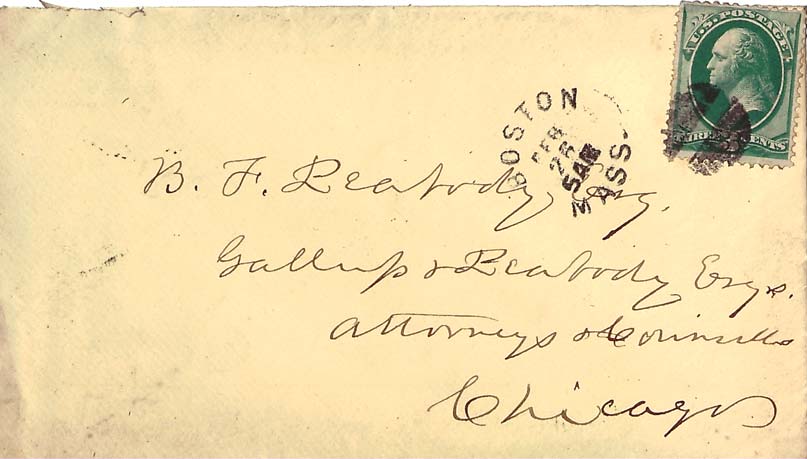 U.S. POSTAGE
THREE CENTS
BOSTON
FEB
26
5AM
MASS.
B. F. Peabody Esq.
Gallup & Peabody Esqs.
Attorneys & Counsellors
Chicago